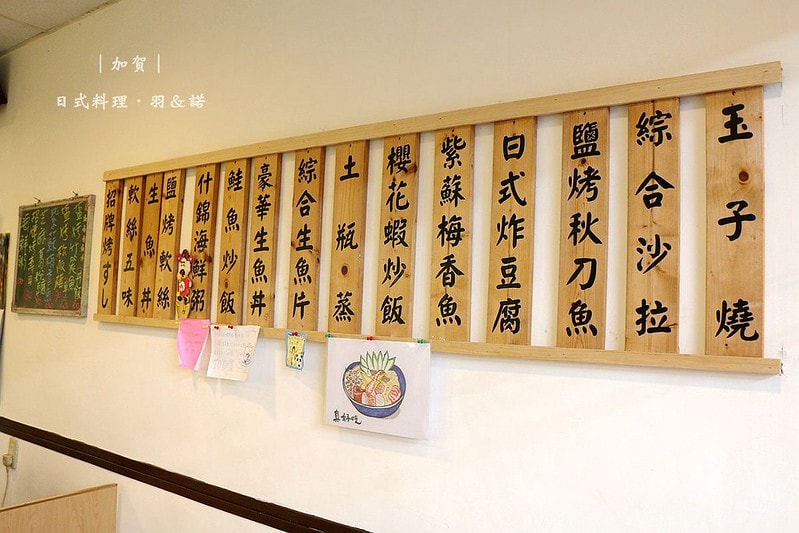 ｜加賀｜
日式料理．羽＆諾
玉子燒
綜合沙拉
鹽烤秋刀魚
日式炸豆腐
紫蘇梅香魚
櫻花蝦炒飯
土瓶蒸
綜合生魚片
豪華生魚丼
鮭魚炒飯
什錦海鮮粥
鹽烤軟絲
生魚丼
軟絲五味
招牌烤すし
真好吃